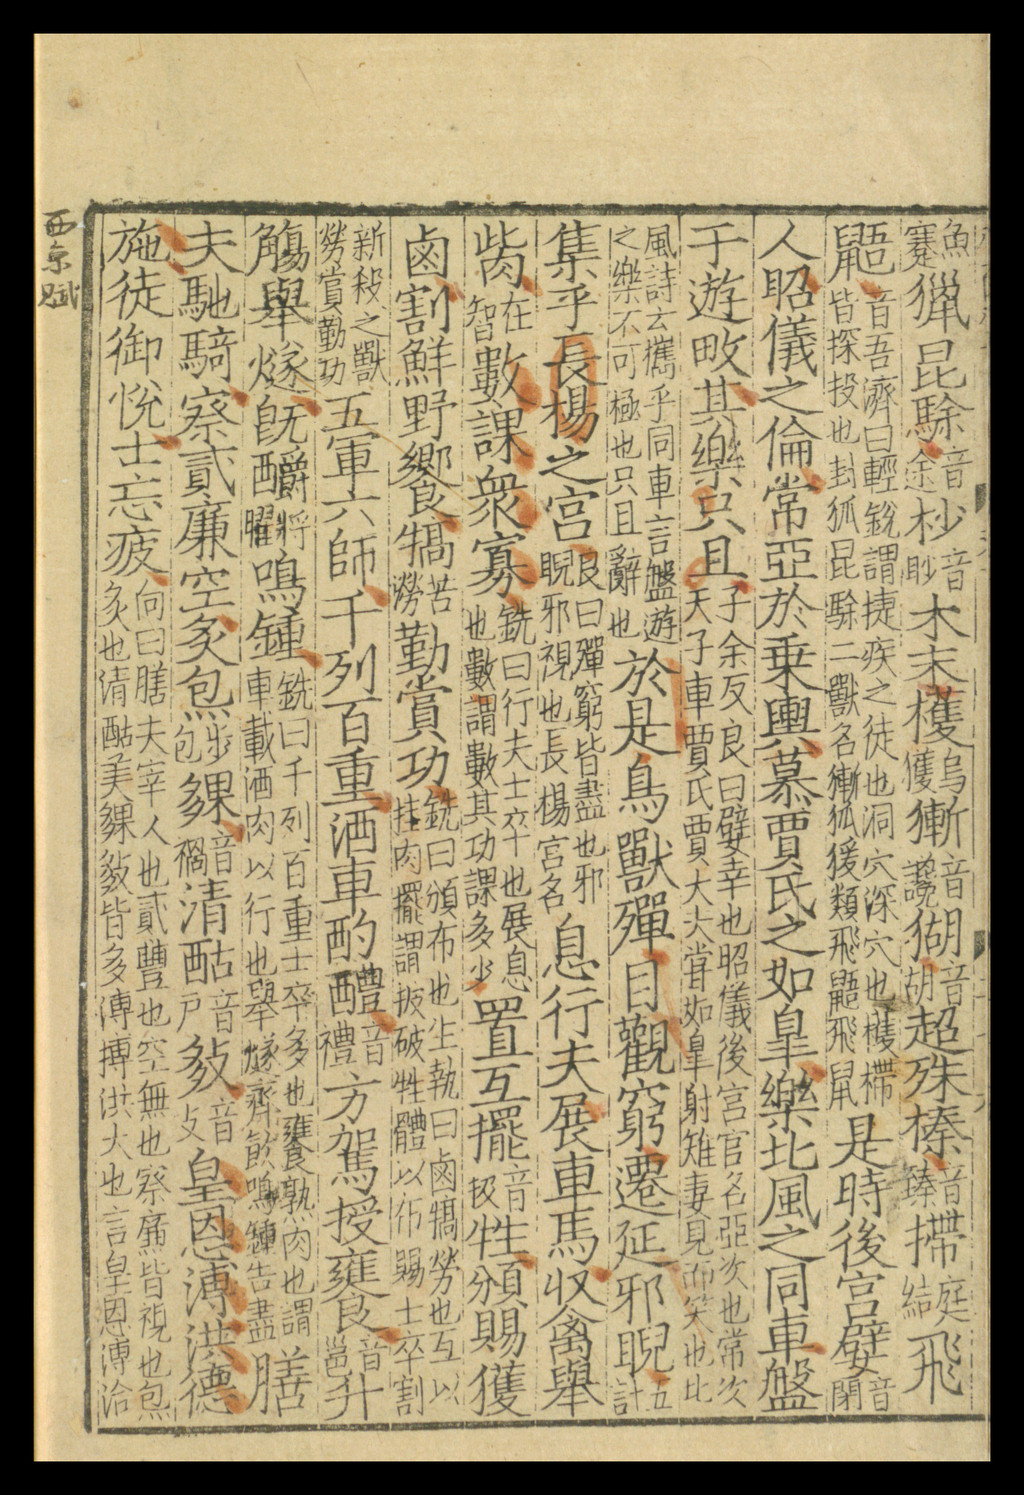 魚蹇獵昆駼音途杪音眇木末檴烏獲獑音讒猢音胡超殊榛音臻摕庭結飛
鼯音吾濟曰輕銳謂捷疾之徒也洞穴深穴也檴摕皆探投也封狐昆駼二獸名獑狐猨類飛鼯飛鼠是時後宮嬖音閉
人昭儀之倫常亞於乘輿慕賈氏之如臯樂北風之同車盤
于遊畋其樂只且子余反良曰嬖幸也昭儀後宮官名亞次也常次天子車賈氏賈大夫甞如臯射雉妻見而笑也北
風詩云攜乎同車言盤遊之樂不可極也只且辭也於是鳥獸殫目觀窮遷延邪睨五計
集乎長楊之宮良曰殫窮皆盡也邪睨邪視也長楊宮名息行夫展車馬收禽舉
胔在智數課衆寡銑曰行夫士卒也展息也數謂數其功課多少置互擺音㧞牲頒賜獲
鹵割鮮野饗犒苦勞勤賞功銑曰頒布也生執曰鹵犒勞也互以挂肉擺謂披破牲體以佈賜士卒割
新殺之獸勞賞勤功五軍六師千列百重酒車酌醴音禮方駕授饔音邕升
觴舉燧旣釂將曜鳴鍾銑曰千列百重士卒多也饔熟肉也謂車載酒肉以行也舉燧齊飲鳴鍾告盡膳
夫馳騎察貳廉空炙炰步包夥音禍清酤音戶𢾭音支皇恩溥洪德
施徒御悅士忘疲向曰膳夫宰人也貳豐也空無也察廉皆視也炰炙也清酤美夥𢾭皆多溥搏洪大也言皇恩溥洽
西京賦